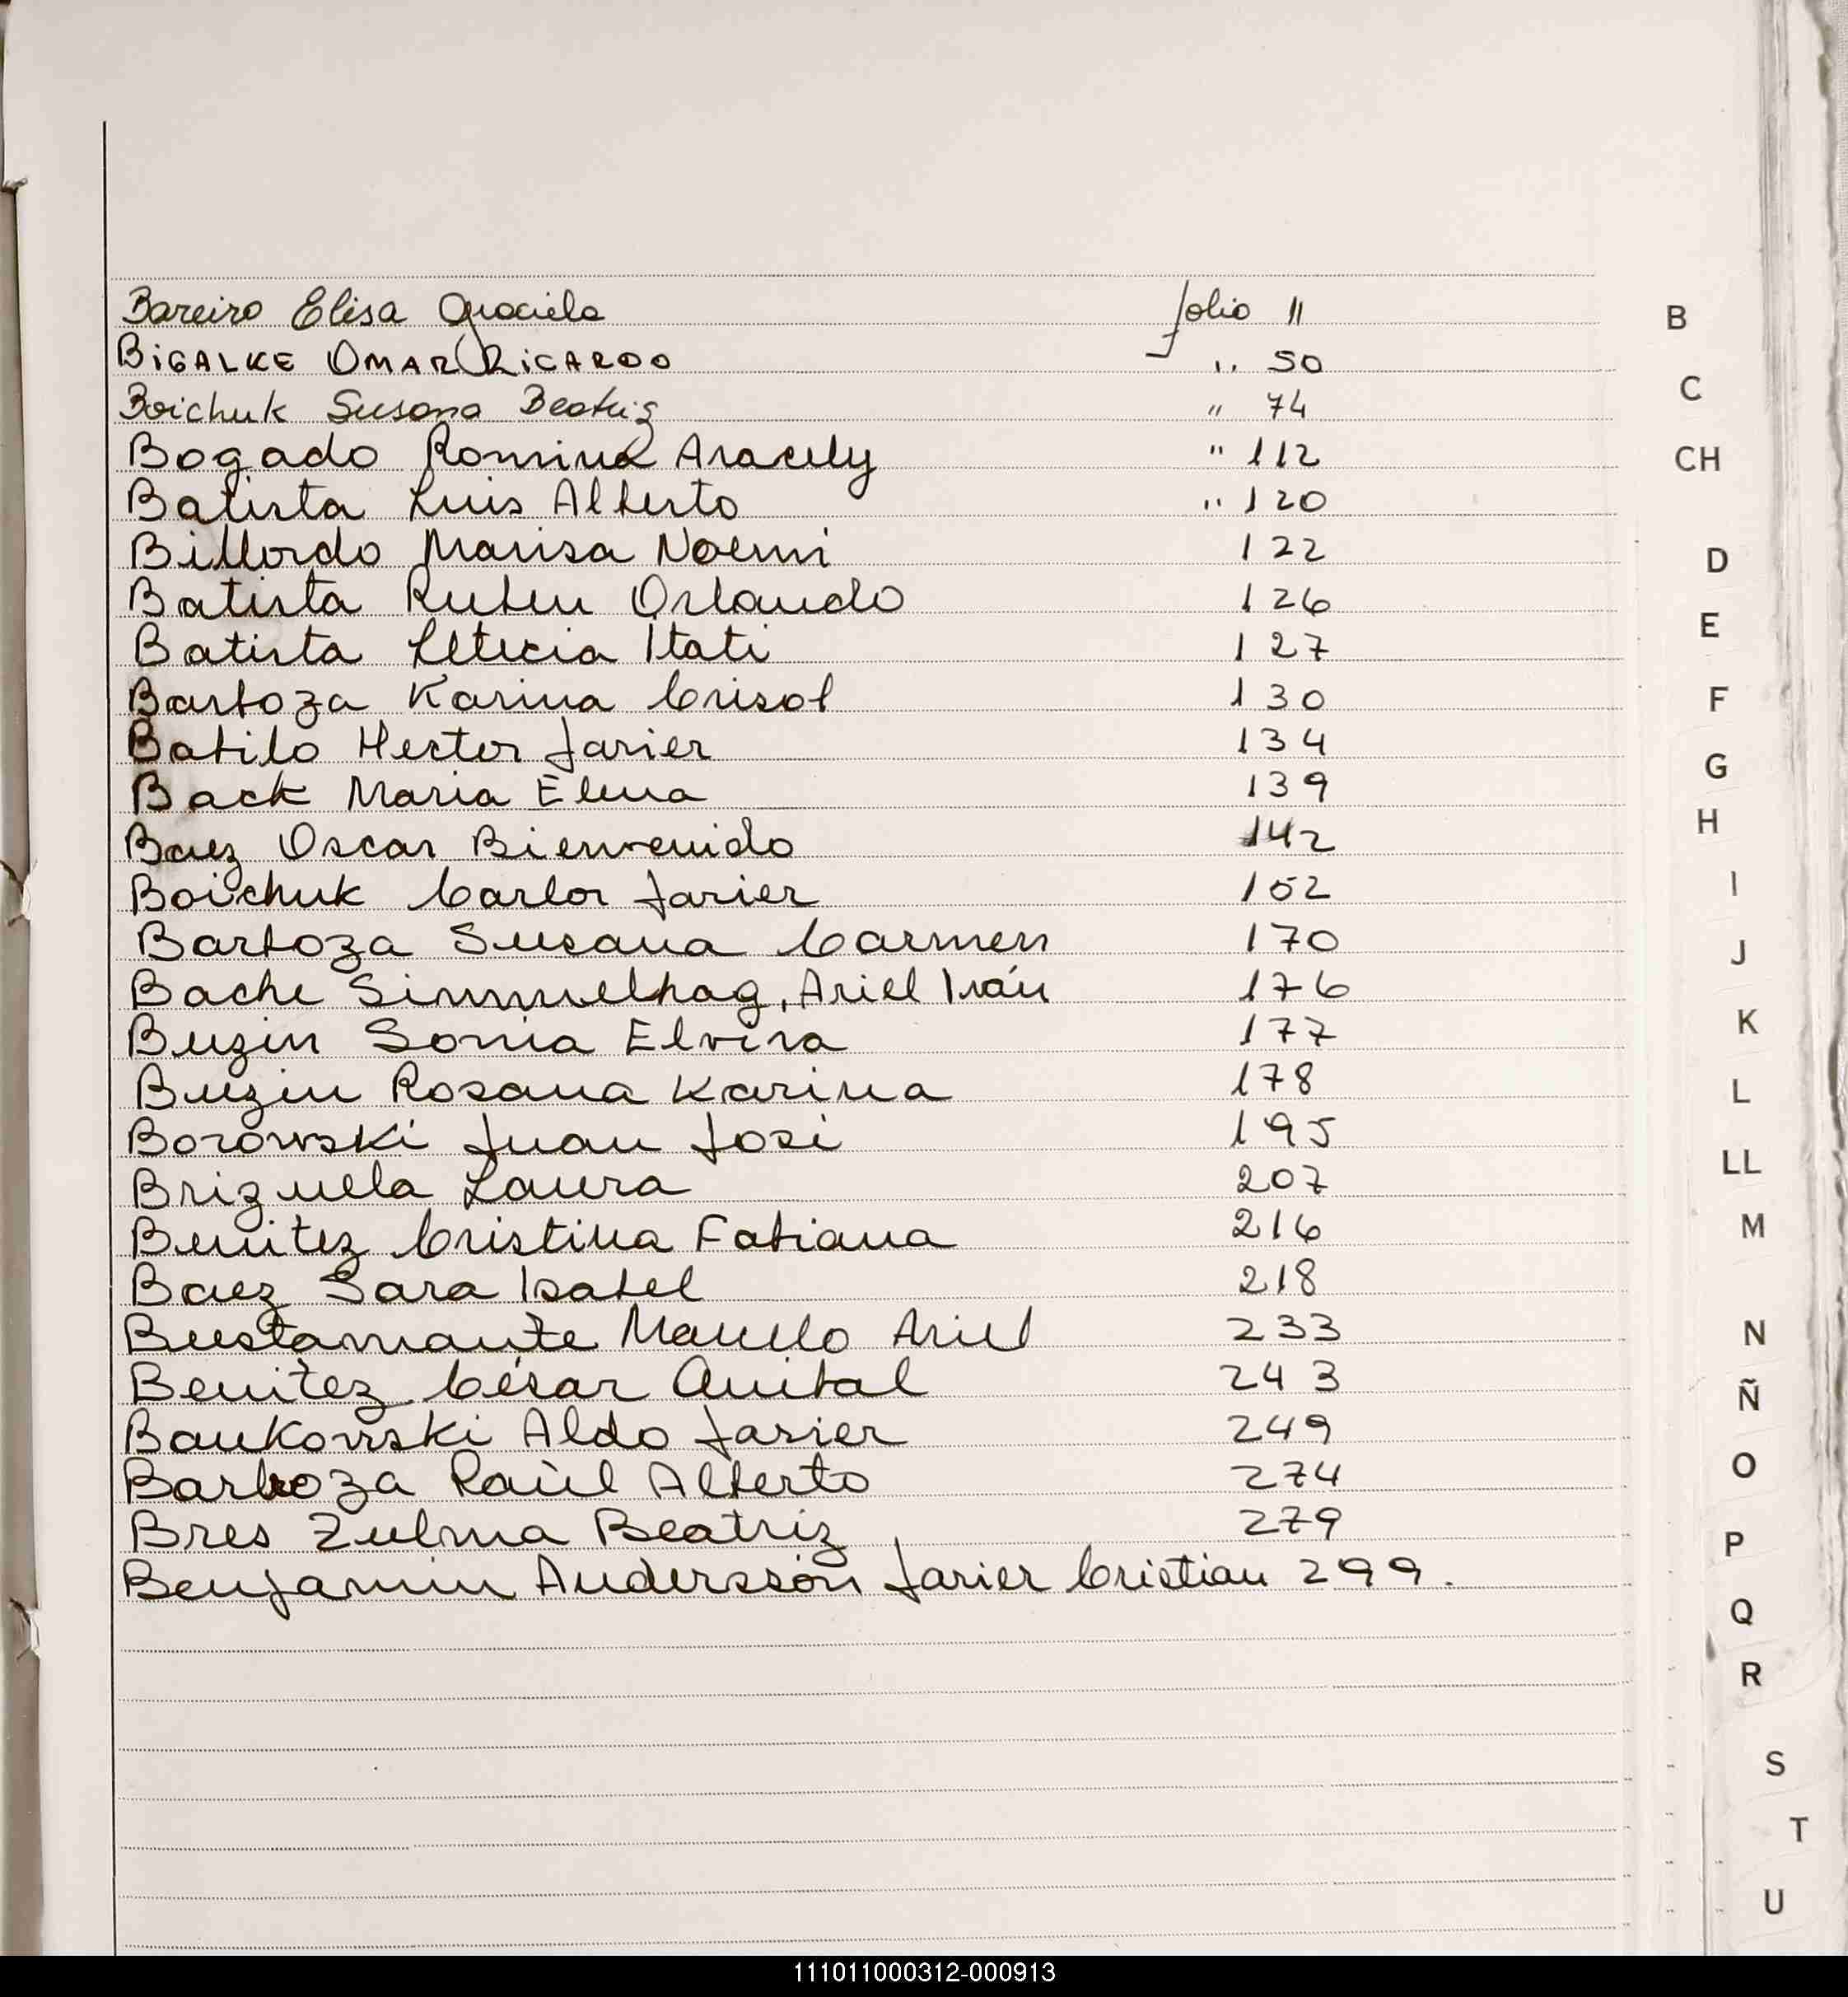 Bareiro Elisa Graciela folio 11
BiGALKE OMAR RiCARDO ,, 50
Boichuk Susana Beatriz " 74
Bogado Romina Aracely " 112
Batista Luis Alberto " 120
Billordo Marisa Noemi 122
Batista Ruben Orlando 126
Batista Leticia Itati 127
Barboza Karina Crisol 130
Batilo Hector Javier 134
Back Maria Elena 139
Baez Oscar Bienvenido 142
Boichuk Carlos Javier 152
Barboza Susana Carmen 170
Bache Simmelhag, Ariel Iván 176
Buzin Sonia Elvira 177
Buzin Rosana Karina 178
Borowski Juan José 195
Brizuela Laura 207
Benitez Cristina Fabiana 216
Baez Sara Isabel 218
Bustamante Marcelo Ariel 233
Benitez César Anibal 243
Bankowski Aldo Javier 249
Barboza Raúl Alberto 274
Bres Zulma Beatriz 279
Benjamin Andersson Javier Cristian 299.
B
C
CH
D
E
F
G
H
I
J
K
L
LL
M
N
Ñ
O
P
Q
R
S
T
U
111011000312-000913